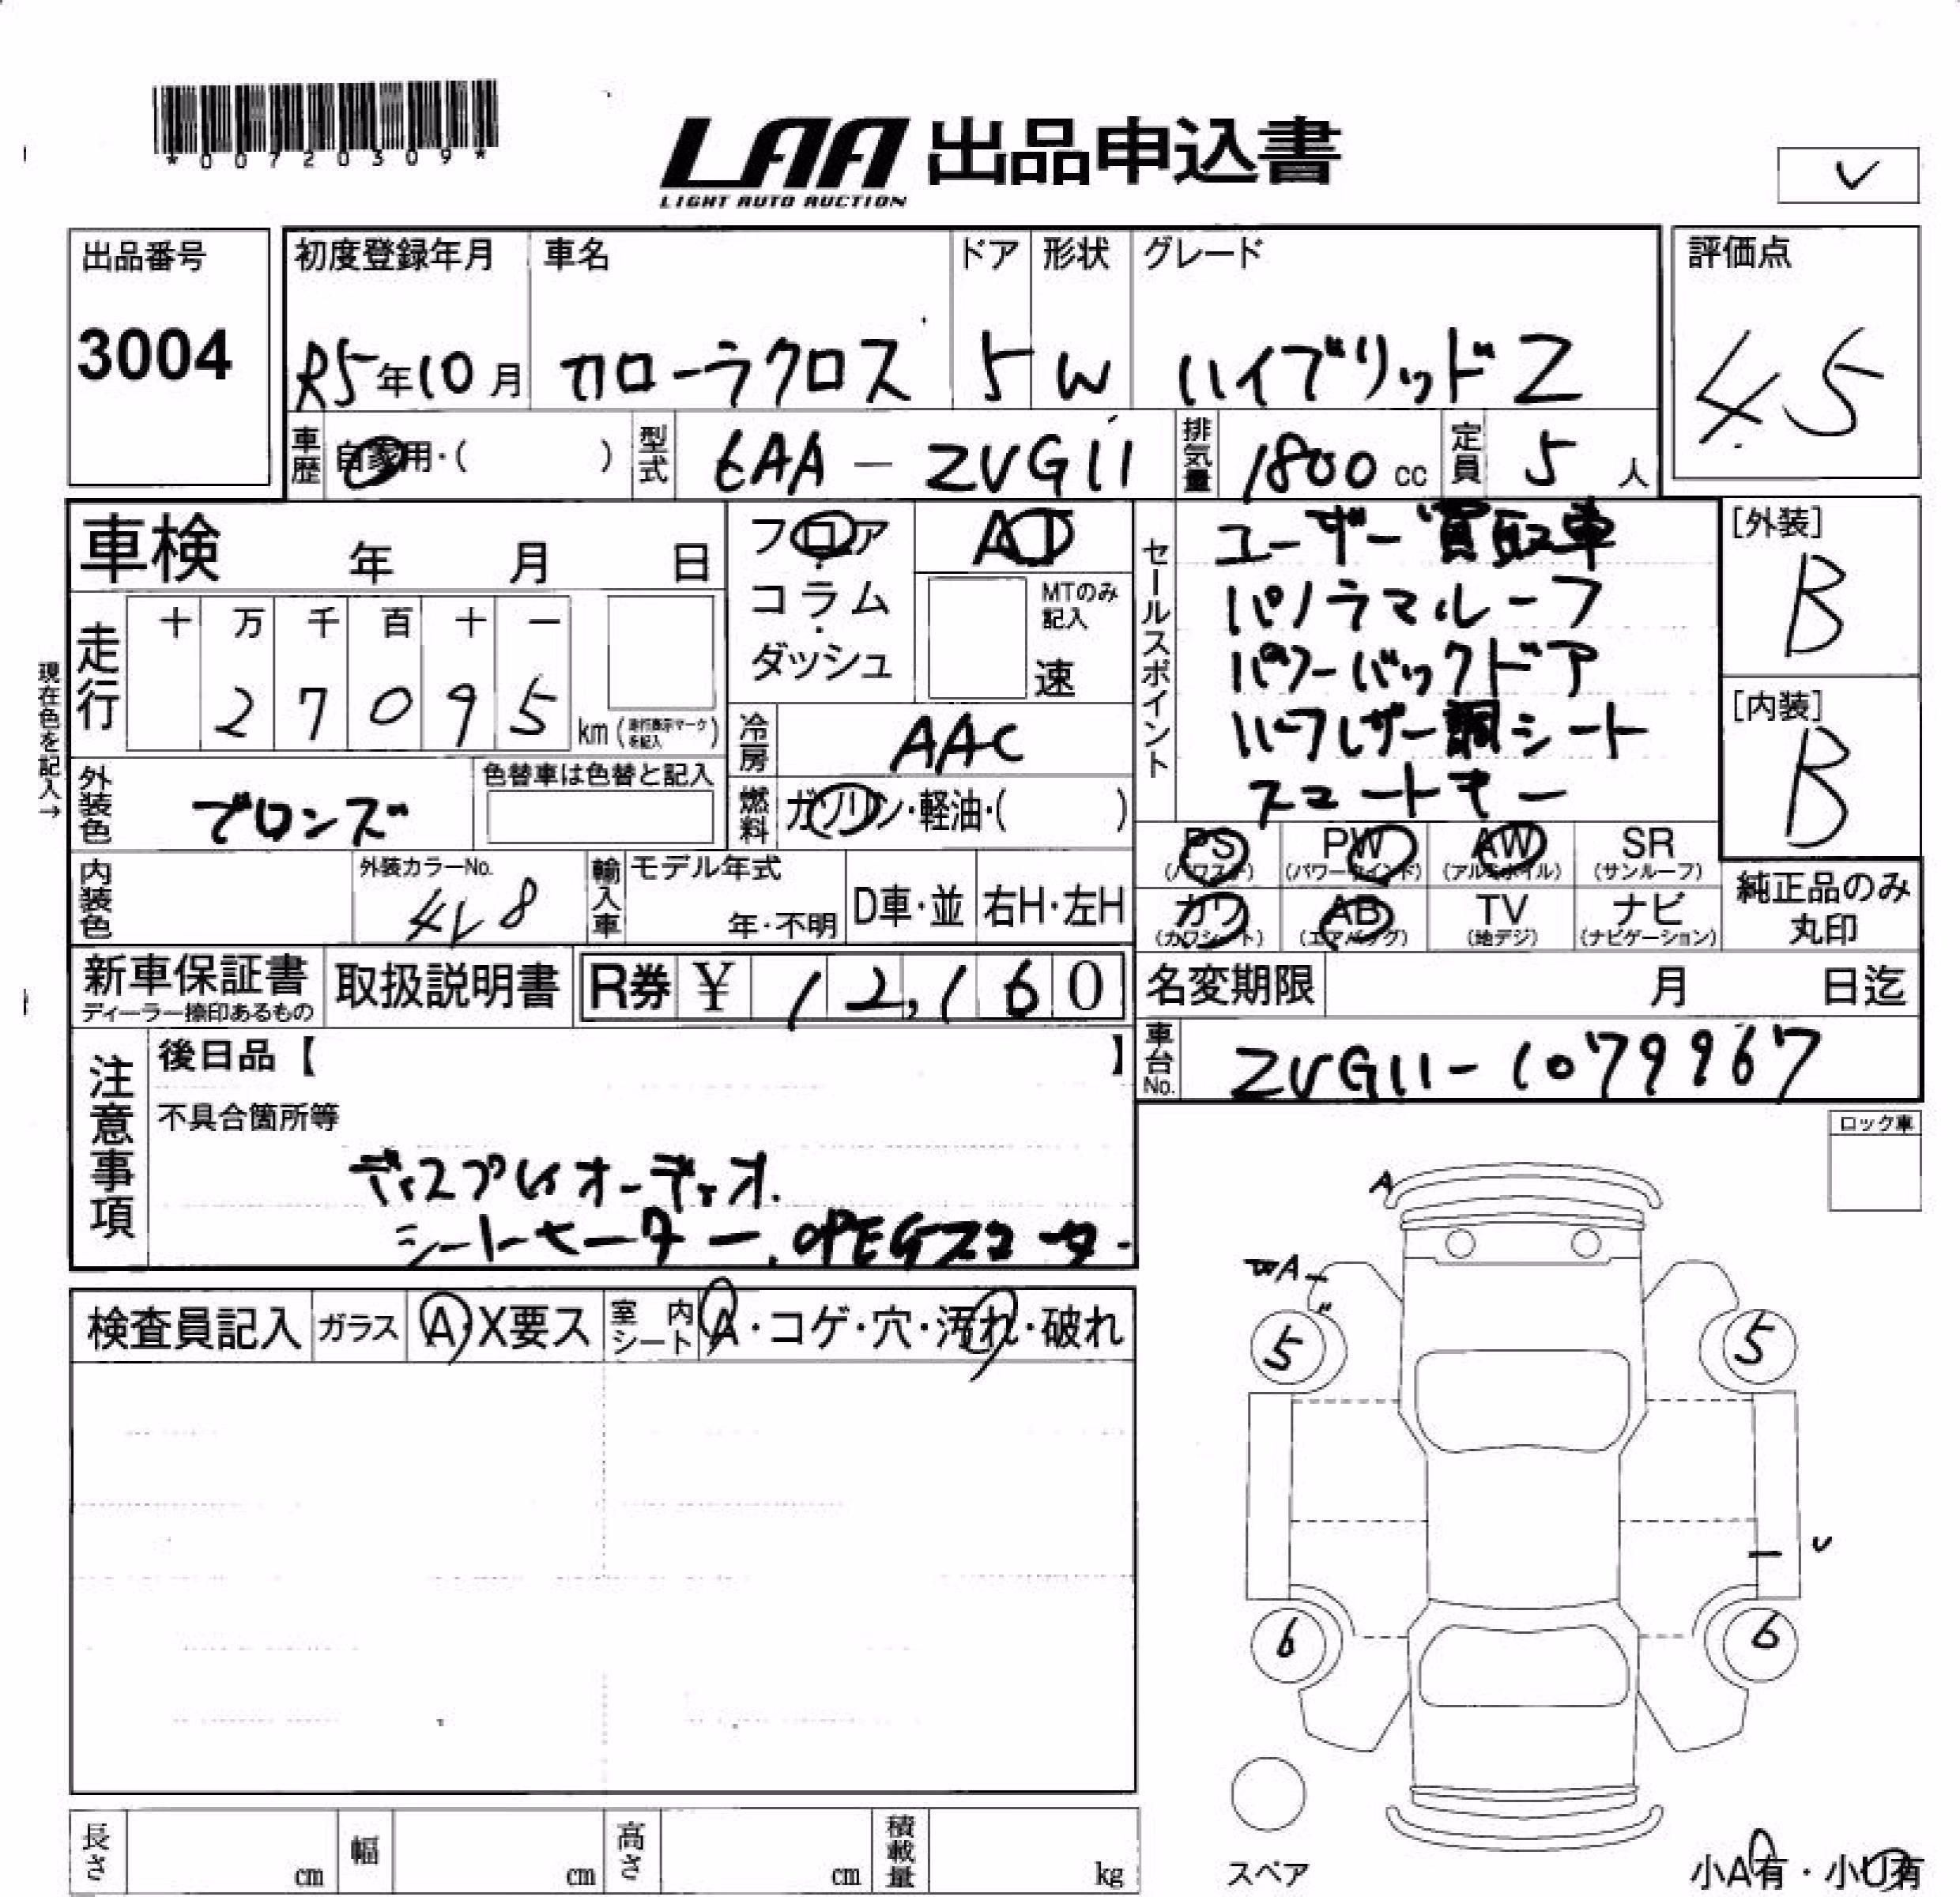 *00720309*
LAA 出品申込書
LIGHT AUTO AUCTION
出品番号
3004
初度登録年月
R5年10月
車名
カローラクロス
ドア
5
形状
W
グレード
ハイブリッドZ
評価点
4.5
車歴
自家用・( )
型式
6AA - ZVG11
排気量
1800 cc
定員
5 人
車検 年 月 日
フロア
コラム
ダッシュ
AT
MTのみ記入
速
セールスポイント
ユーザー買取車
パノラマルーフ
パワーバックドア
ハーフレザー調シート
スマートキー
[外装]
B
[内装]
B
現在色を記入→
走行
十 万 千 百 十 一
2 7 0 9 5 km (走行表示マークを記入)
冷房
AAC
燃料
ガソリン・軽油・( )
外装色
ブロンズ
色替車は色替と記入
内装色
外装カラーNo.
4V8
輸入車
モデル年式
年・不明
D車・並
右H・左H
PS (パワステ)
PW (パワーウインド)
AW (アルミホイル)
SR (サンルーフ)
カワ (カワシート)
AB (エアバック)
TV (地デジ)
ナビ (ナビゲーション)
純正品のみ
丸印
新車保証書
ディーラー捺印あるもの
取扱説明書
R券 ¥ 12,160
名変期限 月 日迄
車台No.
ZVG11-1079967
注意事項
後日品【 】
不具合箇所等
ディスプレイオーディオ.
シートヒーター.
ロック車
A
WA
5
5
検査員記入
ガラス
A・X要ス
室内シート
A・コゲ・穴・汚れ・破れ
U
6
6
スペア
小A有・小U有
長さ cm
幅 cm
高さ cm
積載量 kg